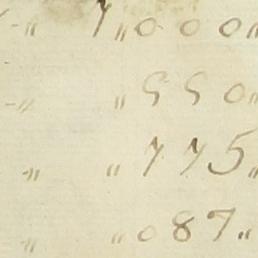 -〃 7〃000〃
-〃 〃550〃
〃 〃775〃
-〃 〃087〃